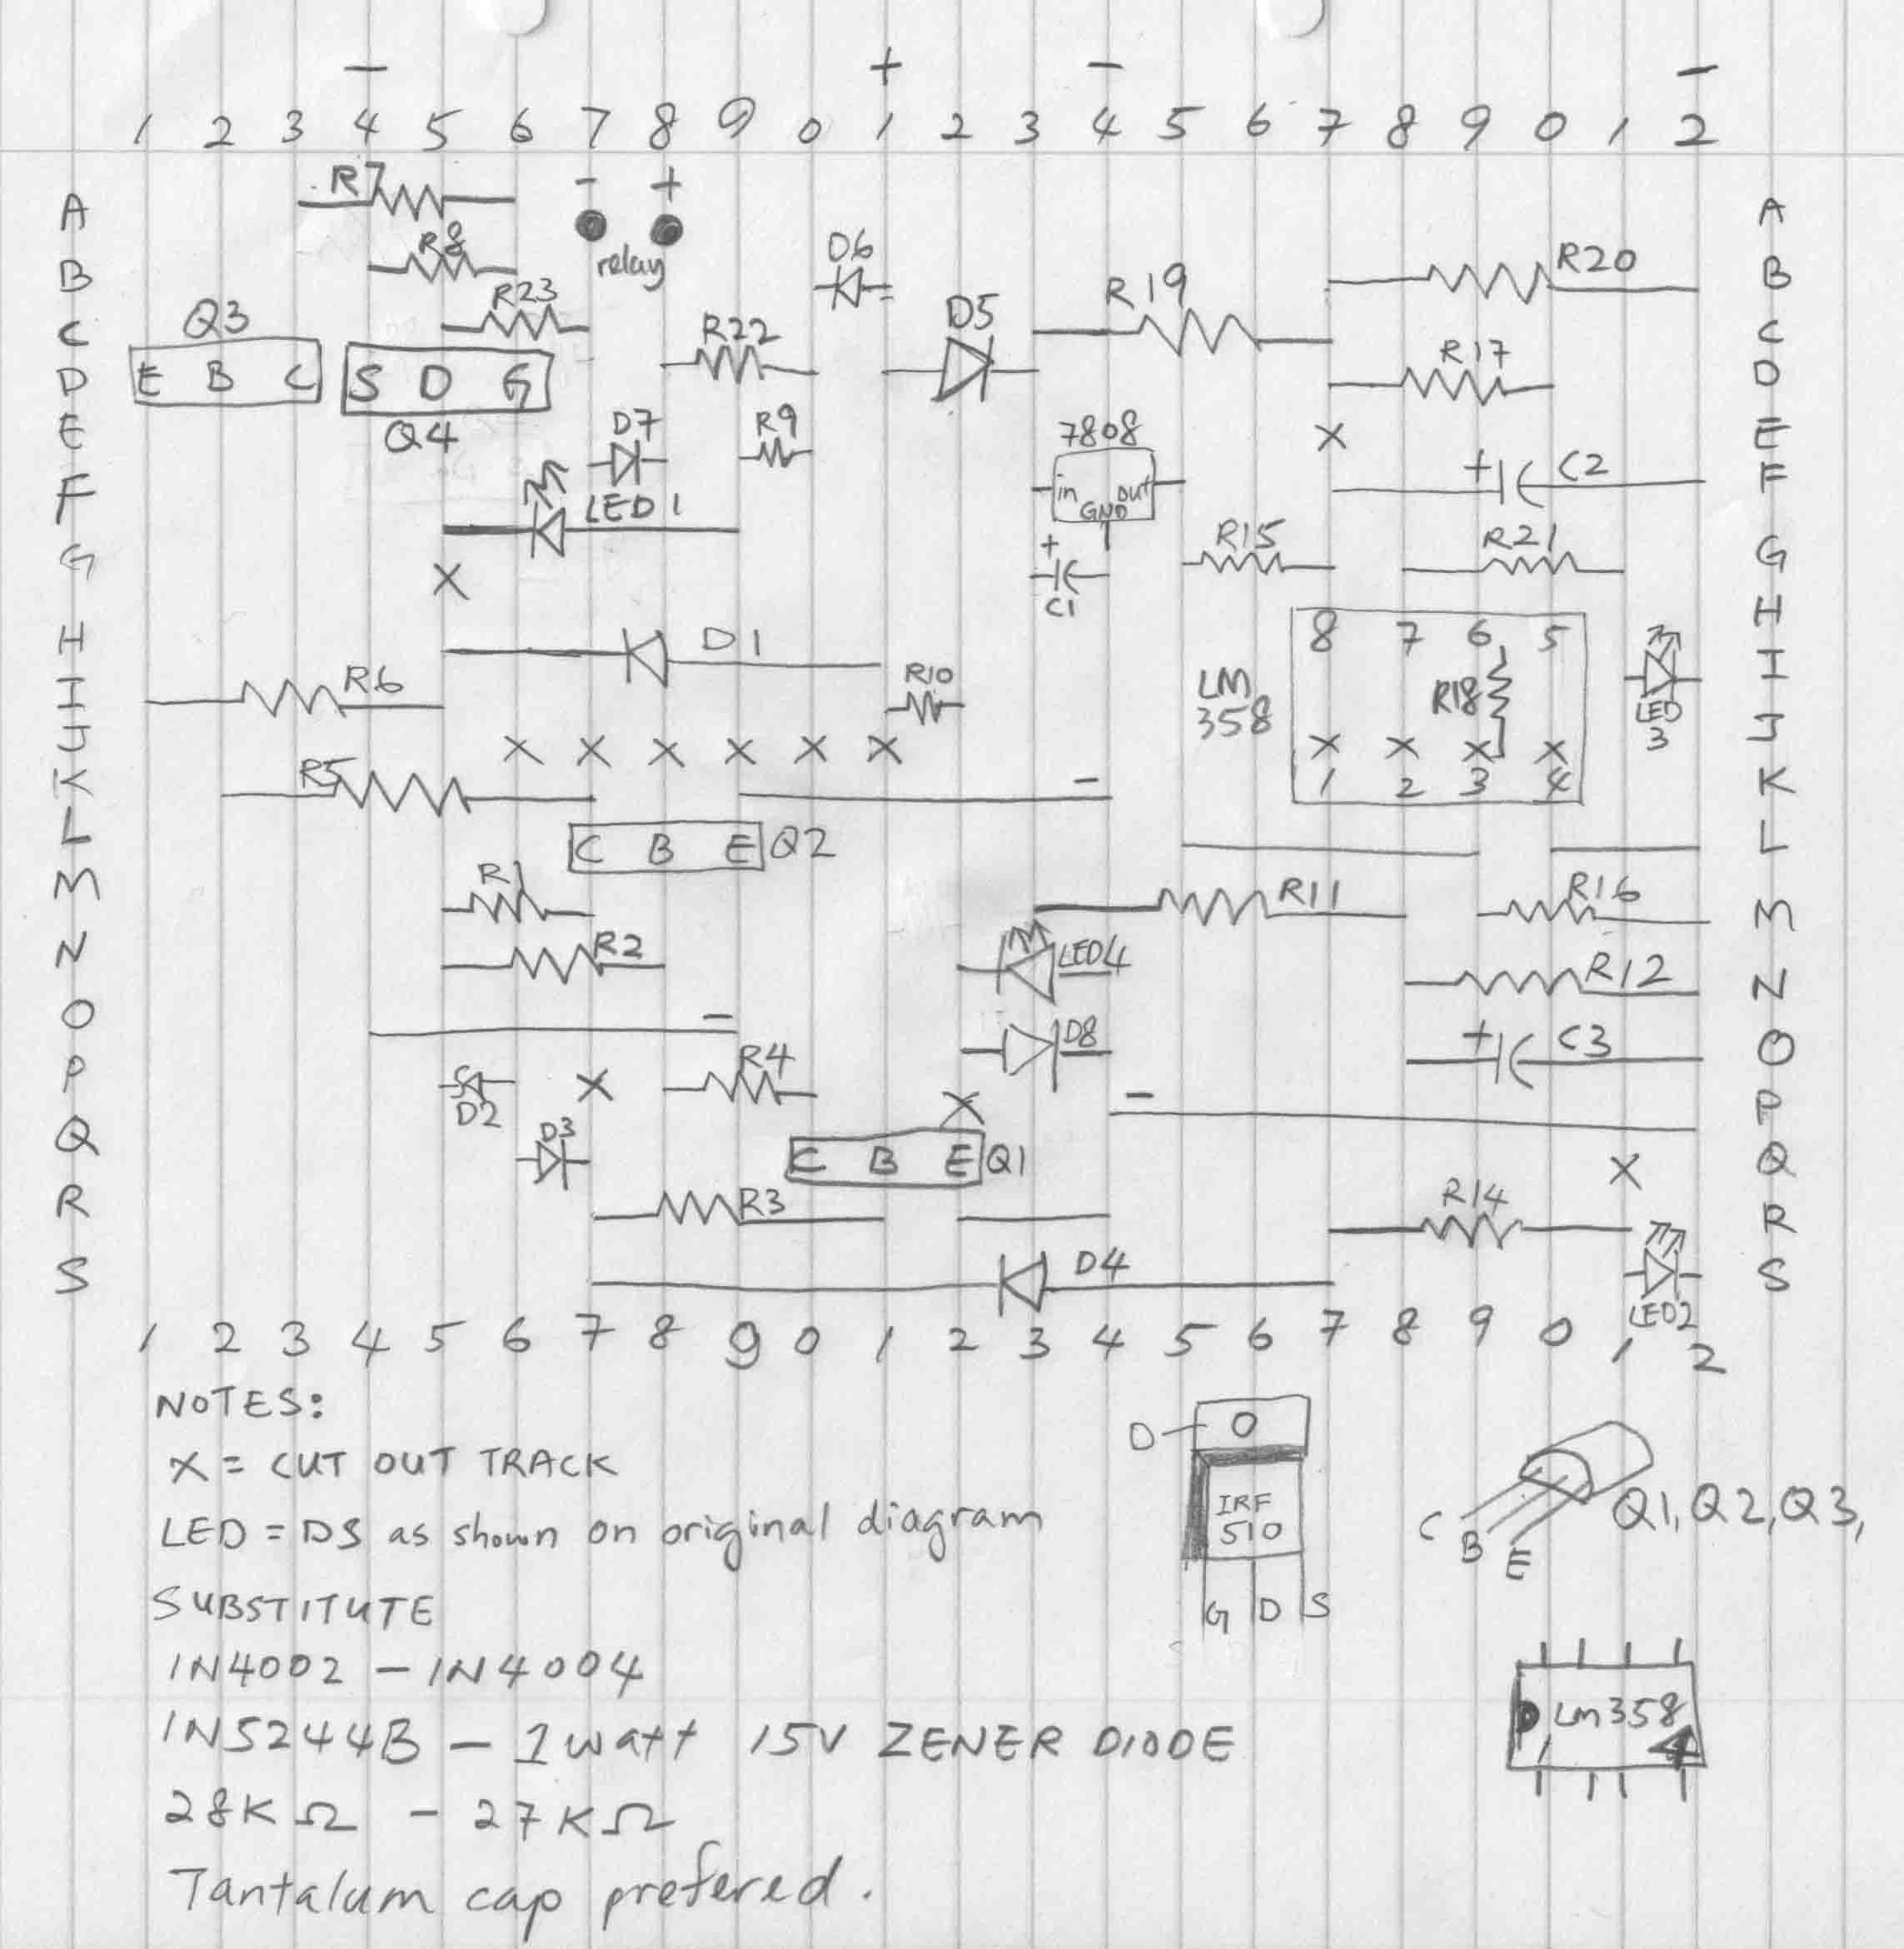 − + − −
1 2 3 4 5 6 7 8 9 0 1 2 3 4 5 6 7 8 9 0 1 2
A R7 − + A
relay
B R8 D6 R20 B
C Q3 R23 R22 D5 R19 R17 C
D E B C S D G D
E Q4 D7 R9 7808 X E
F LED1 in out GND + C2 F
G X + C1 R15 R21 G
H D1 8 7 6 5 H
I R6 R10 LM 358 R18 LED 3 I
J X X X X X X X X X X J
K R5 − 1 2 3 4 K
L C B E Q2 L
M R1 R11 R16 M
N R2 LED4 R12 N
O − D8 + C3 O
P D2 X R4 X − P
Q D3 C B E Q1 X Q
R R3 R14 R
S D4 LED2 S
1 2 3 4 5 6 7 8 9 0 1 2 3 4 5 6 7 8 9 0 1 2
NOTES:
X = CUT OUT TRACK
LED = DS as shown on original diagram
SUBSTITUTE
1N4002 − 1N4004
1N5244B − 1watt 15V ZENER DIODE
28KΩ − 27KΩ
Tantalum cap prefered.
D O
IRF
510
G D S
C B E Q1, Q2, Q3,
LM358
1 4